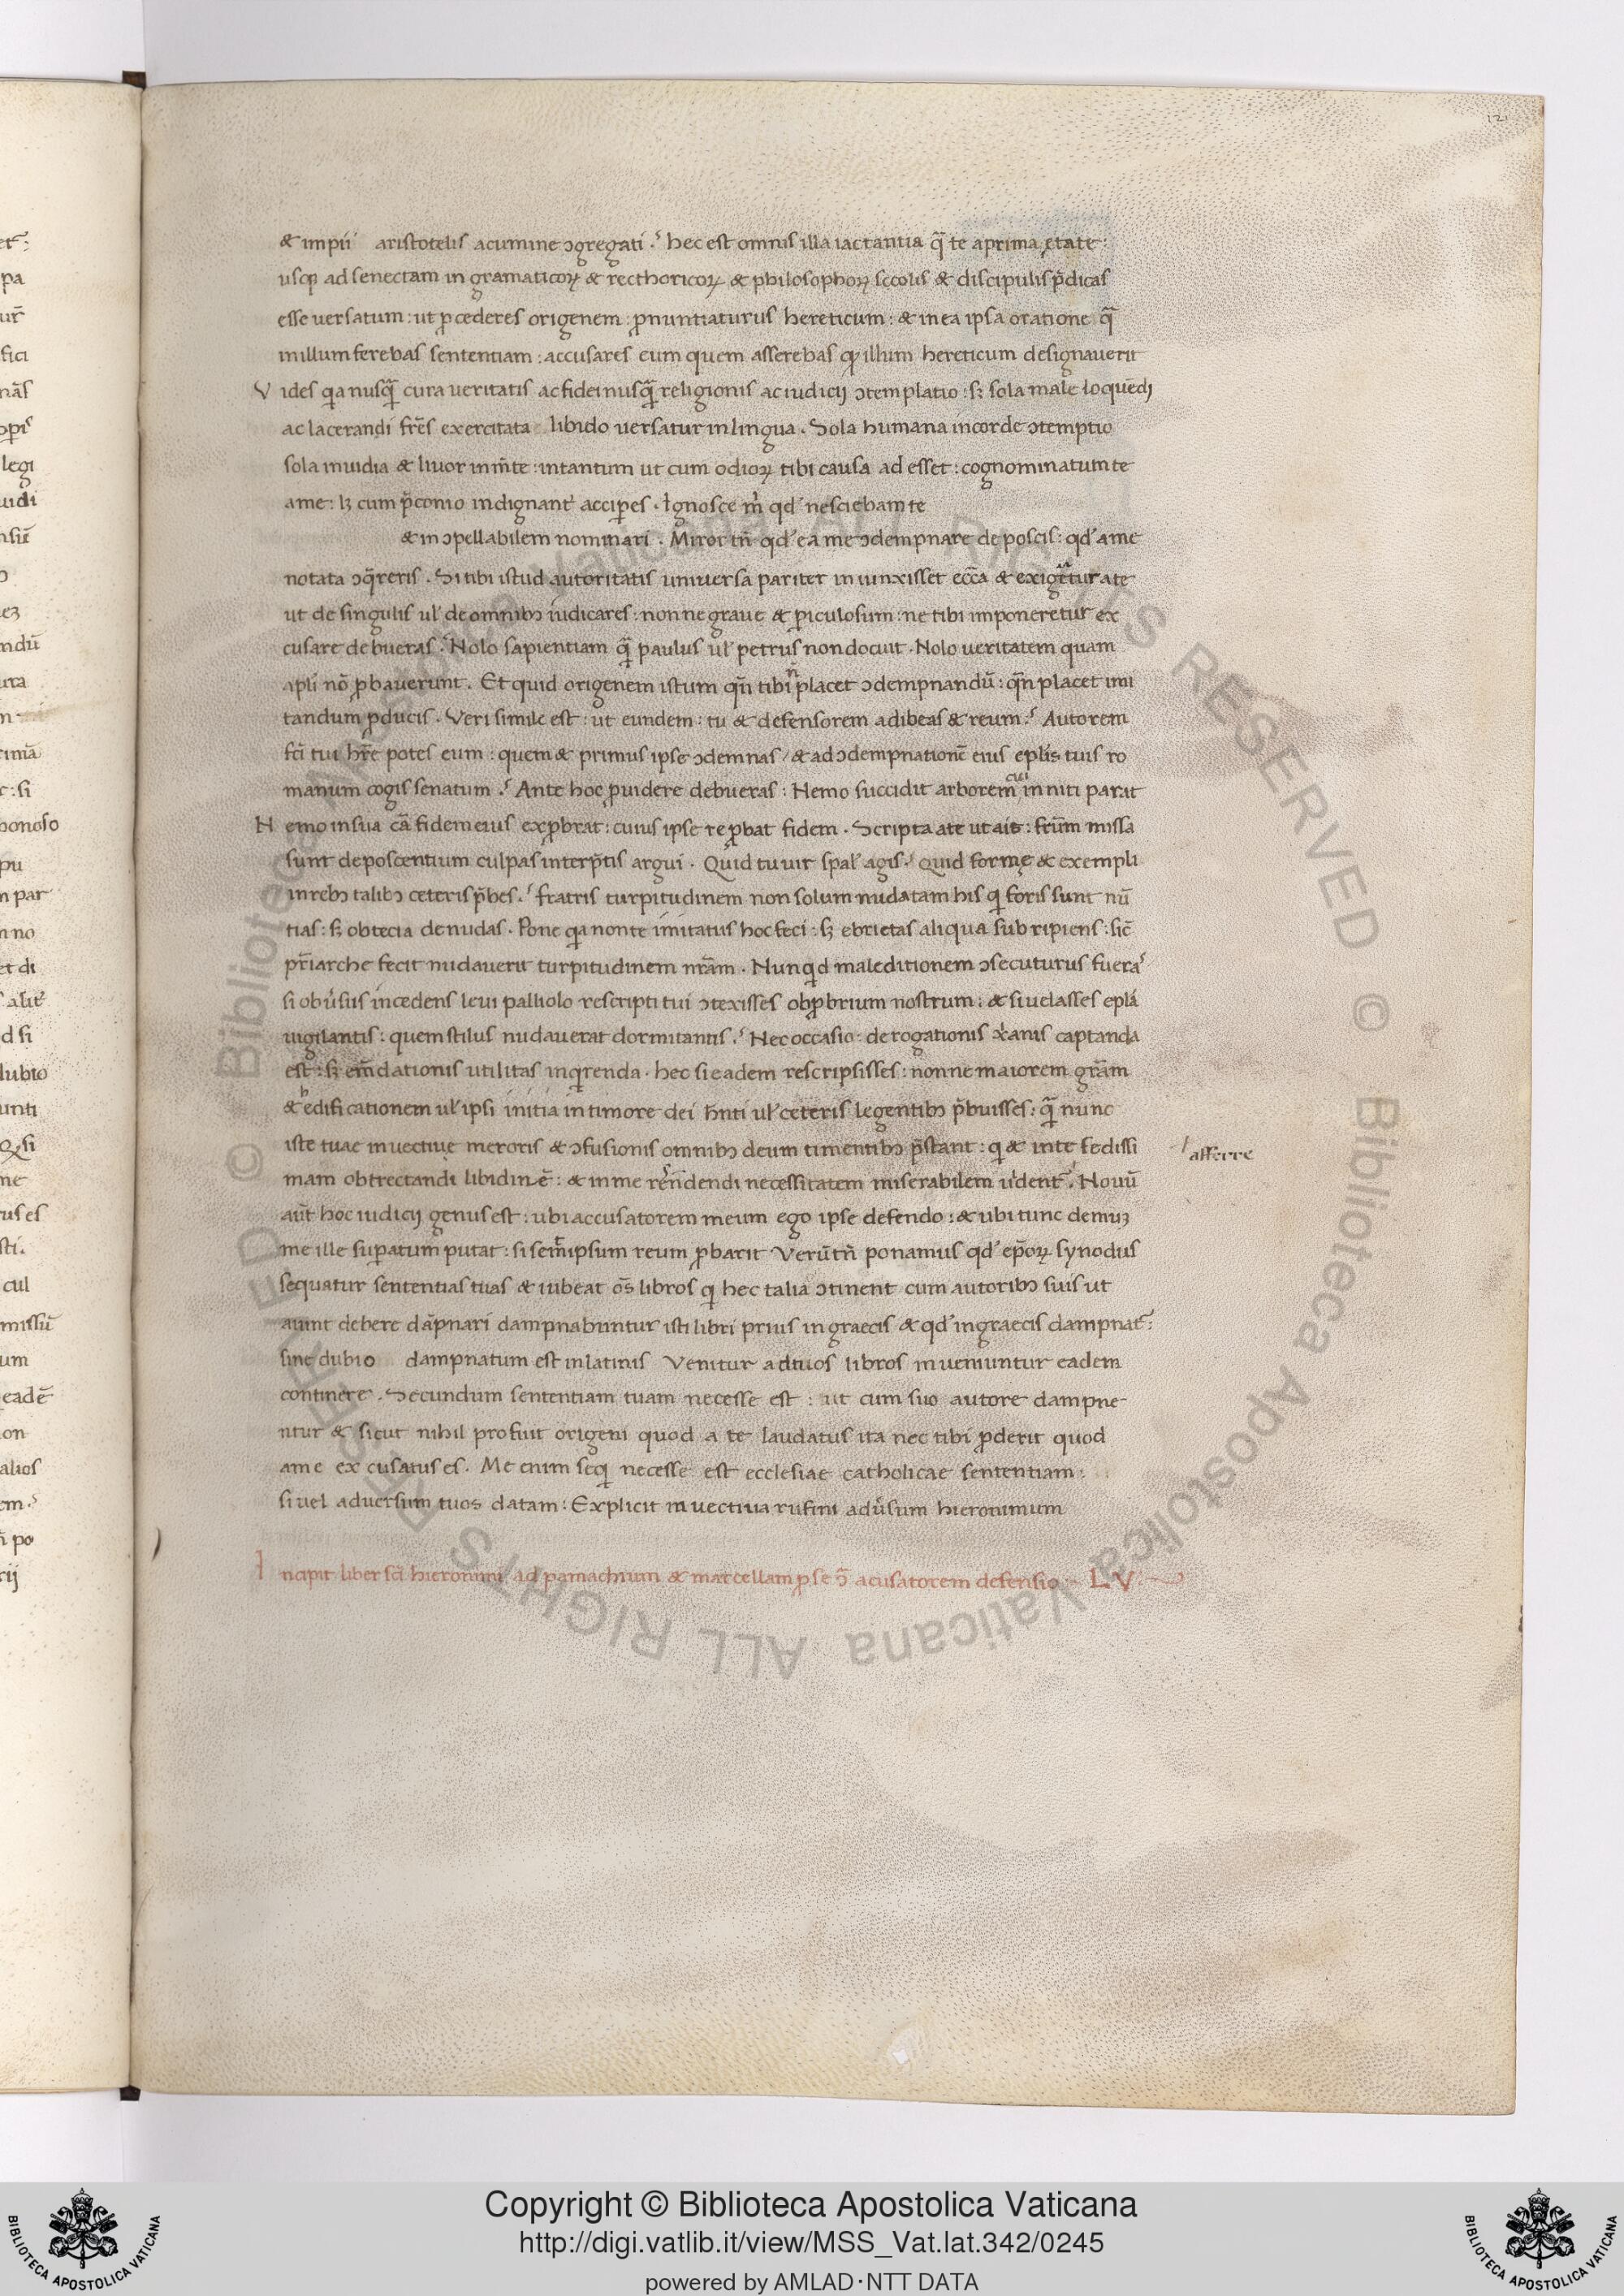 121
& impii aristotelis acumine ɔgregati.ˀ hec est omnis illa iactantia q̃ te aprima ętate:
usq; ad senectam in gramaticoꝝ & recthoricoꝝ & philosophoꝝ scolis & discipulis p̃dicas
esse uersatum: ut ꝓcederes origenem: ꝓnuntiaturus hereticum: & inea ipsa oratione q̃
inillum ferebas sententiam: accusares eum quem asserebas ꝙ illum hereticum designauerit
V ides qia nusq̃ cura ueritatis ac fidei nusq̃ religionis ac iudicij ɔtemplatio: sꝫ sola male loquẽdi
ac lacerandi fr̃es exercitata libido uersatur inlingua. Sola humana incorde ɔtemptio
sola inuidia & liuor inm̃te: intantum ut cum odioꝝ tibi causa ad esset: cognominatum te
ame: lꝫ cum p̃conio indignant᷑ accipes. Ignosce m̓ qd̓ nesciebam te
& inɔpellabilem nominari. Miror tñ qd̓ ea me ɔdempnare deposcis: qd̓ ame
notata ɔq̃reris. Si tibi istud autoritatis uniuersa pariter in iunxisset ecc̃a & exiger&tur ate
ut de singulis ul̓ de omnibꝫ iudicares: nonne graue & ꝑiculosum: ne tibi imponeretur ex
cusare debueras.ˀ Nolo sapientiam q̃ paulus ul̓ petrus non docuit. Nolo ueritatem quam
apl̃i nõ ꝓbauerunt. Et quid origenem istum qñ tibi ñ placet ɔdempnandũ: qñ placet imi
tandum ꝓducis. Veri simile est: ut eundem: tu & defensorem adibeas & reum.ˀ Autorem
fc̃i tui hr̃e potes eum: quem & primus ipse ɔdemnas / & ad ɔdempnationẽ eius epl̃is tuis ro
manum cogis senatum.ˀ Ante hoc ꝓuidere debueras: Nemo succidit arborem cui inniti parat
N emo insua cã fidem eius exꝓbrat: cuius ipse reꝓbat fidem. Scripta ate ut ait: fr̃um missa
sunt deposcentium culpas interp̃tis argui. Quid tu uir spal̓ agis.ˀ quid formę & exempli
inrebꝫ talibꝫ ceteris p̃bes.ˀ fratris turpitudinem non solum nudatam his qi foris sunt nũ
tias: sꝫ obtecta denudas. Pone qia non te imitatus hoc feci: sꝫ ebrietas aliqua subripiens: sic̃
pr̃iarche fecit nudauerit turpitudinem nr̃am. Nunqid maleditionem ɔsecuturus fueras
si obũsus incedens leui palliolo rescripti tui ɔtexisses obꝓbrium nostrum: & si uelasses epl̃a
uigilantis: quem stilus nudauerat dormitantis.ˀ Nec occasio: derogationis xp̃ianis captanda
est: sꝫ em̃dationis utilitas inqirenda. hec si eadem rescripsisses: nonne maiorem gr̃am
& edificationem ul̓ ipsi initia intimore dei h̃nti ul̓ ceteris legentibꝫ p̃buisses: q̃ nunc
iste tuae inuectiuę meroris & ɔfusionis omnibꝫ deum timentibꝫ p̃stant: qi & inte fedissi
afferre
mam obtrectandi libidinẽ: & inme rñdendi necessitatem miserabilem uident᷑. Nouũ
aut̃ hoc iudicij genus est: ubi accusatorem meum ego ipse defendo: & ubi tunc demuꝫ
me ille suꝑatum putat: si sem&ipsum reum ꝓbarit Verũtñ ponamus qd̓ ep̃oꝝ synodus
sequatur sententias tuas & iubeat om̃s libros qi hec talia ɔtinent cum autoribꝫ suis ut
aiunt debere dãpnari dampnabuntur isti libri prius in graecis & qd̓ ingraecis dampnat᷑:
sine dubio dampnatum est inlatinis Venitur ad tuos libros inueniuntur eadem
continere. Secundum sententiam tuam necesse est: ut cum suo autore dampne-
ntur & sicut nihil profuit origeni quod a te laudatus ita nec tibi ꝓderit quod
ame excusatus es. Me enim seqi necesse est ecclesiae catholicae sententiam:
si uel aduersum tuos datam: Explicit inuectiua rufini adũsum hieronimum
I ncipit liber sc̃i hieronimi ad pamachium & marcellam ꝑ se ɔ̃ acusatorem defensio LV
Copyright © Biblioteca Apostolica Vaticana
http://digi.vatlib.it/view/MSS_Vat.lat.342/0245
powered by AMLAD·NTT DATA
BIBLIOTECA APOSTOLICA VATICANA
BIBLIOTECA APOSTOLICA VATICANA